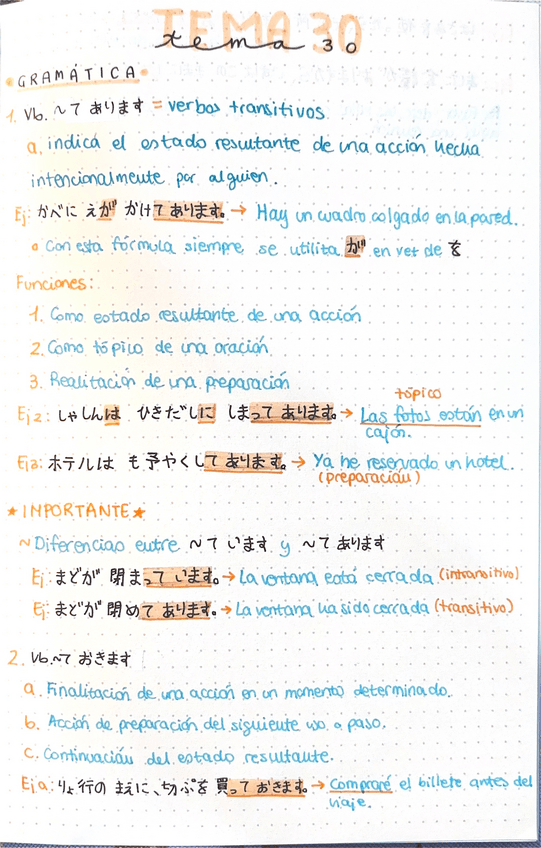 TEMA 30
tema 30
• GRAMÁTICA •
1. Vb. ~て あります = verbos transitivos
a. indica el estado resultante de una acción hecha
intencionalmente por alguien.
Ej: かべに えが かけてあります。→ Hay un cuadro colgado en la pared.
• Con esta fórmula siempre se utiliza が en vez de を
Funciones:
1. Como estado resultante de una acción
2. Como tópico de una oración
3. Realización de una preparación
tópico
Ej2: しゃしんは ひきだしに しまってあります。→ Las fotos están en un
cajón.
Ej3: ホテルは も予やくしてあります。→ Ya he reservado un hotel.
(preparación)
★IMPORTANTE★
~Diferencias entre ~て います y ~て あります
Ej: まどが 閉まっています。→ La ventana está cerrada (intransitivo)
Ej: まどが 閉めてあります。→ La ventana ha sido cerrada (transitivo)
2. Vb.~て おきます
a. Finalización de una acción en un momento determinado.
b. Acción de preparación del siguiente uso o paso.
c. Continuación del estado resultante.
Ej a: りょ行の まえに、切ぷを 買っておきます。→ Compraré el billete antes del
viaje.